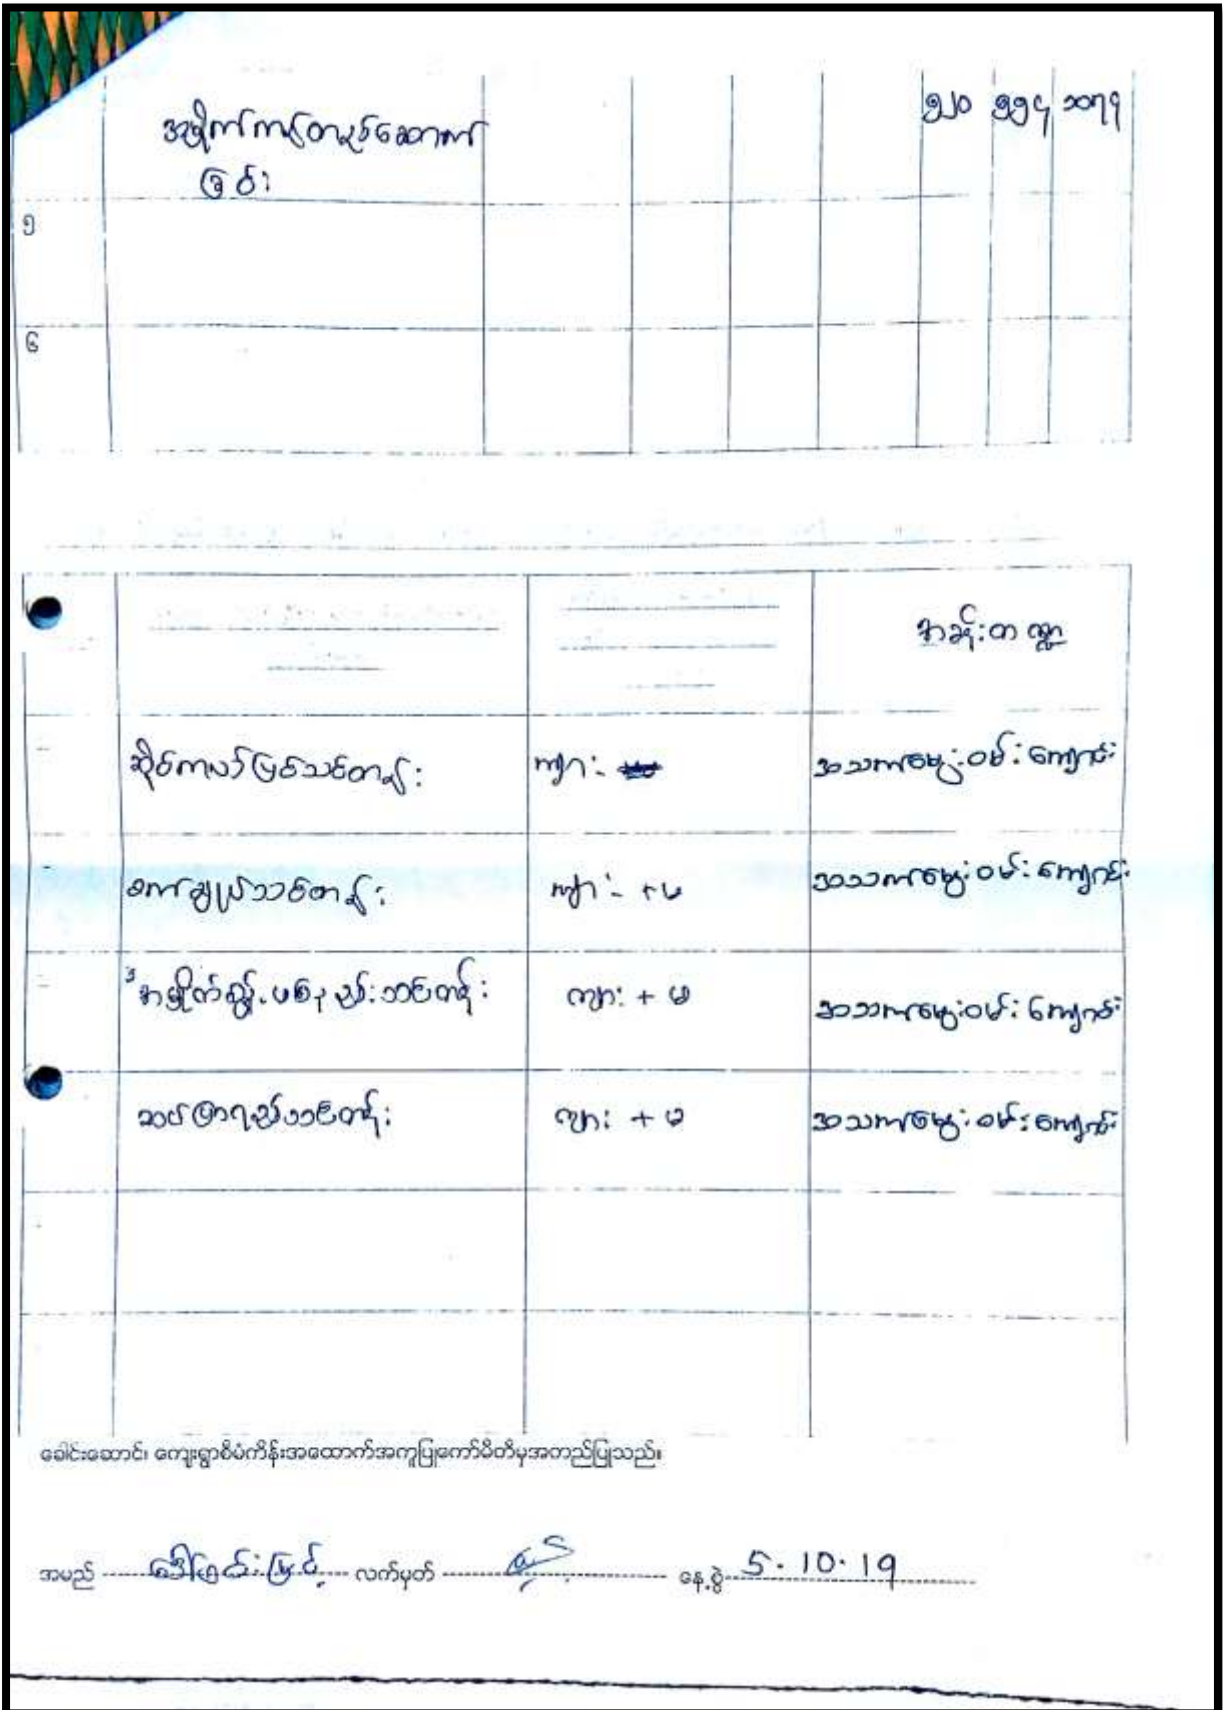 အမှိုက်ကန်တည်ဆောက် ၅၂၀ ၅၅၄ ၁၀၇၄
ခြင်း
၅
၆
အခန်းကဏ္ဍ
ဆိုင်ကယ်ပြင်သင်တန်း ကျား အသက်မွေးဝမ်းကျောင်း
စက်ချုပ်သင်တန်း ကျား + မ အသက်မွေးဝမ်းကျောင်း
သင်တန်း ကျား + မ အသက်မွေးဝမ်းကျောင်း
ဆပ်ပြာရည်သင်တန်း ကျား + မ အသက်မွေးဝမ်းကျောင်း
ခေါင်းဆောင်၊ ကျေးရွာစီမံကိန်းအထောက်အကူပြုကော်မီတီမှအတည်ပြုသည်။
အမည် လက်မှတ် နေ့စွဲ 5.10.19